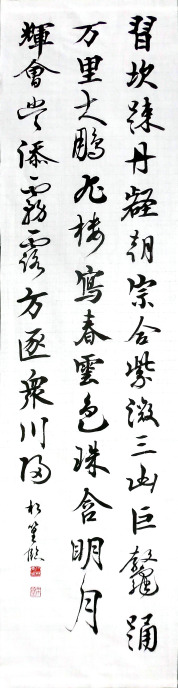 習坎踈丹壑朝宗合紫微三山巨鼇踊
万里大鵬飛楼寫春雲色珠含明月
輝會當添霧露方逐衆川歸